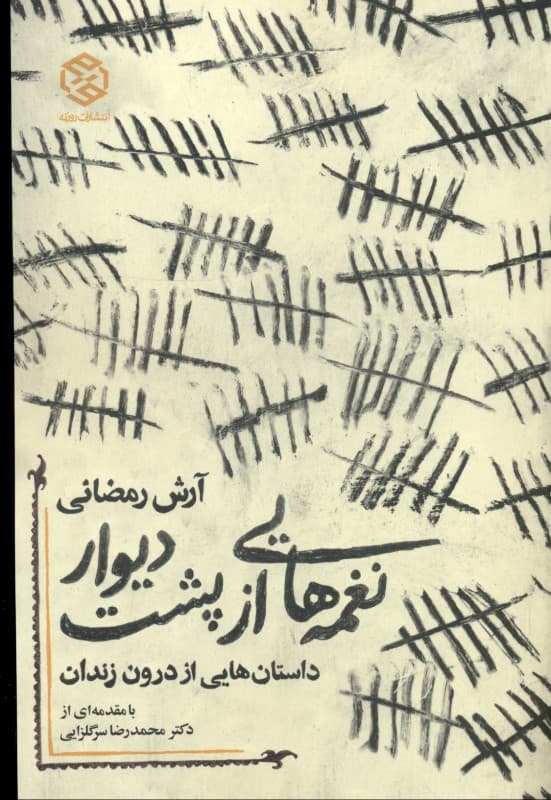 انتشارات روزنه
آرش رمضانی
نغمه‌هایی
از پشت دیوار
داستان‌هایی از درون زندان
با مقدمه‌ای از
دکتر محمدرضا سرگلزایی